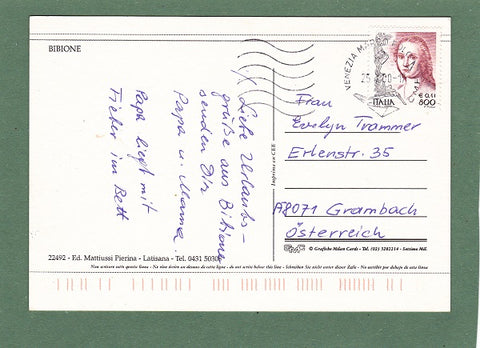 BIBIONE
Liebe Urlaubs-
grüße aus Bibione
senden Dir
Papa u. Mama.
Papa liegt mit
Fieber im Bett
VENEZIA
ITALIA
€ 0,41
800
Frau
Evelyn Trammer
Erlenstr. 35
A8071 Grambach
Österreich
Imprimé en CEE
© Grafiche Milan Cards - Tel. (03) 5282114 - Settimo Mil.
22492 - Ed. Mattiussi Pierina - Latisana - Tel. 0431 5030
Non scrivere sotto questa linea - Ne rien écrire au-dessous de cette ligne - do not write below this line - Schreiben Sie nicht unter dieser Zeile - No escribir por debajo de esta linea